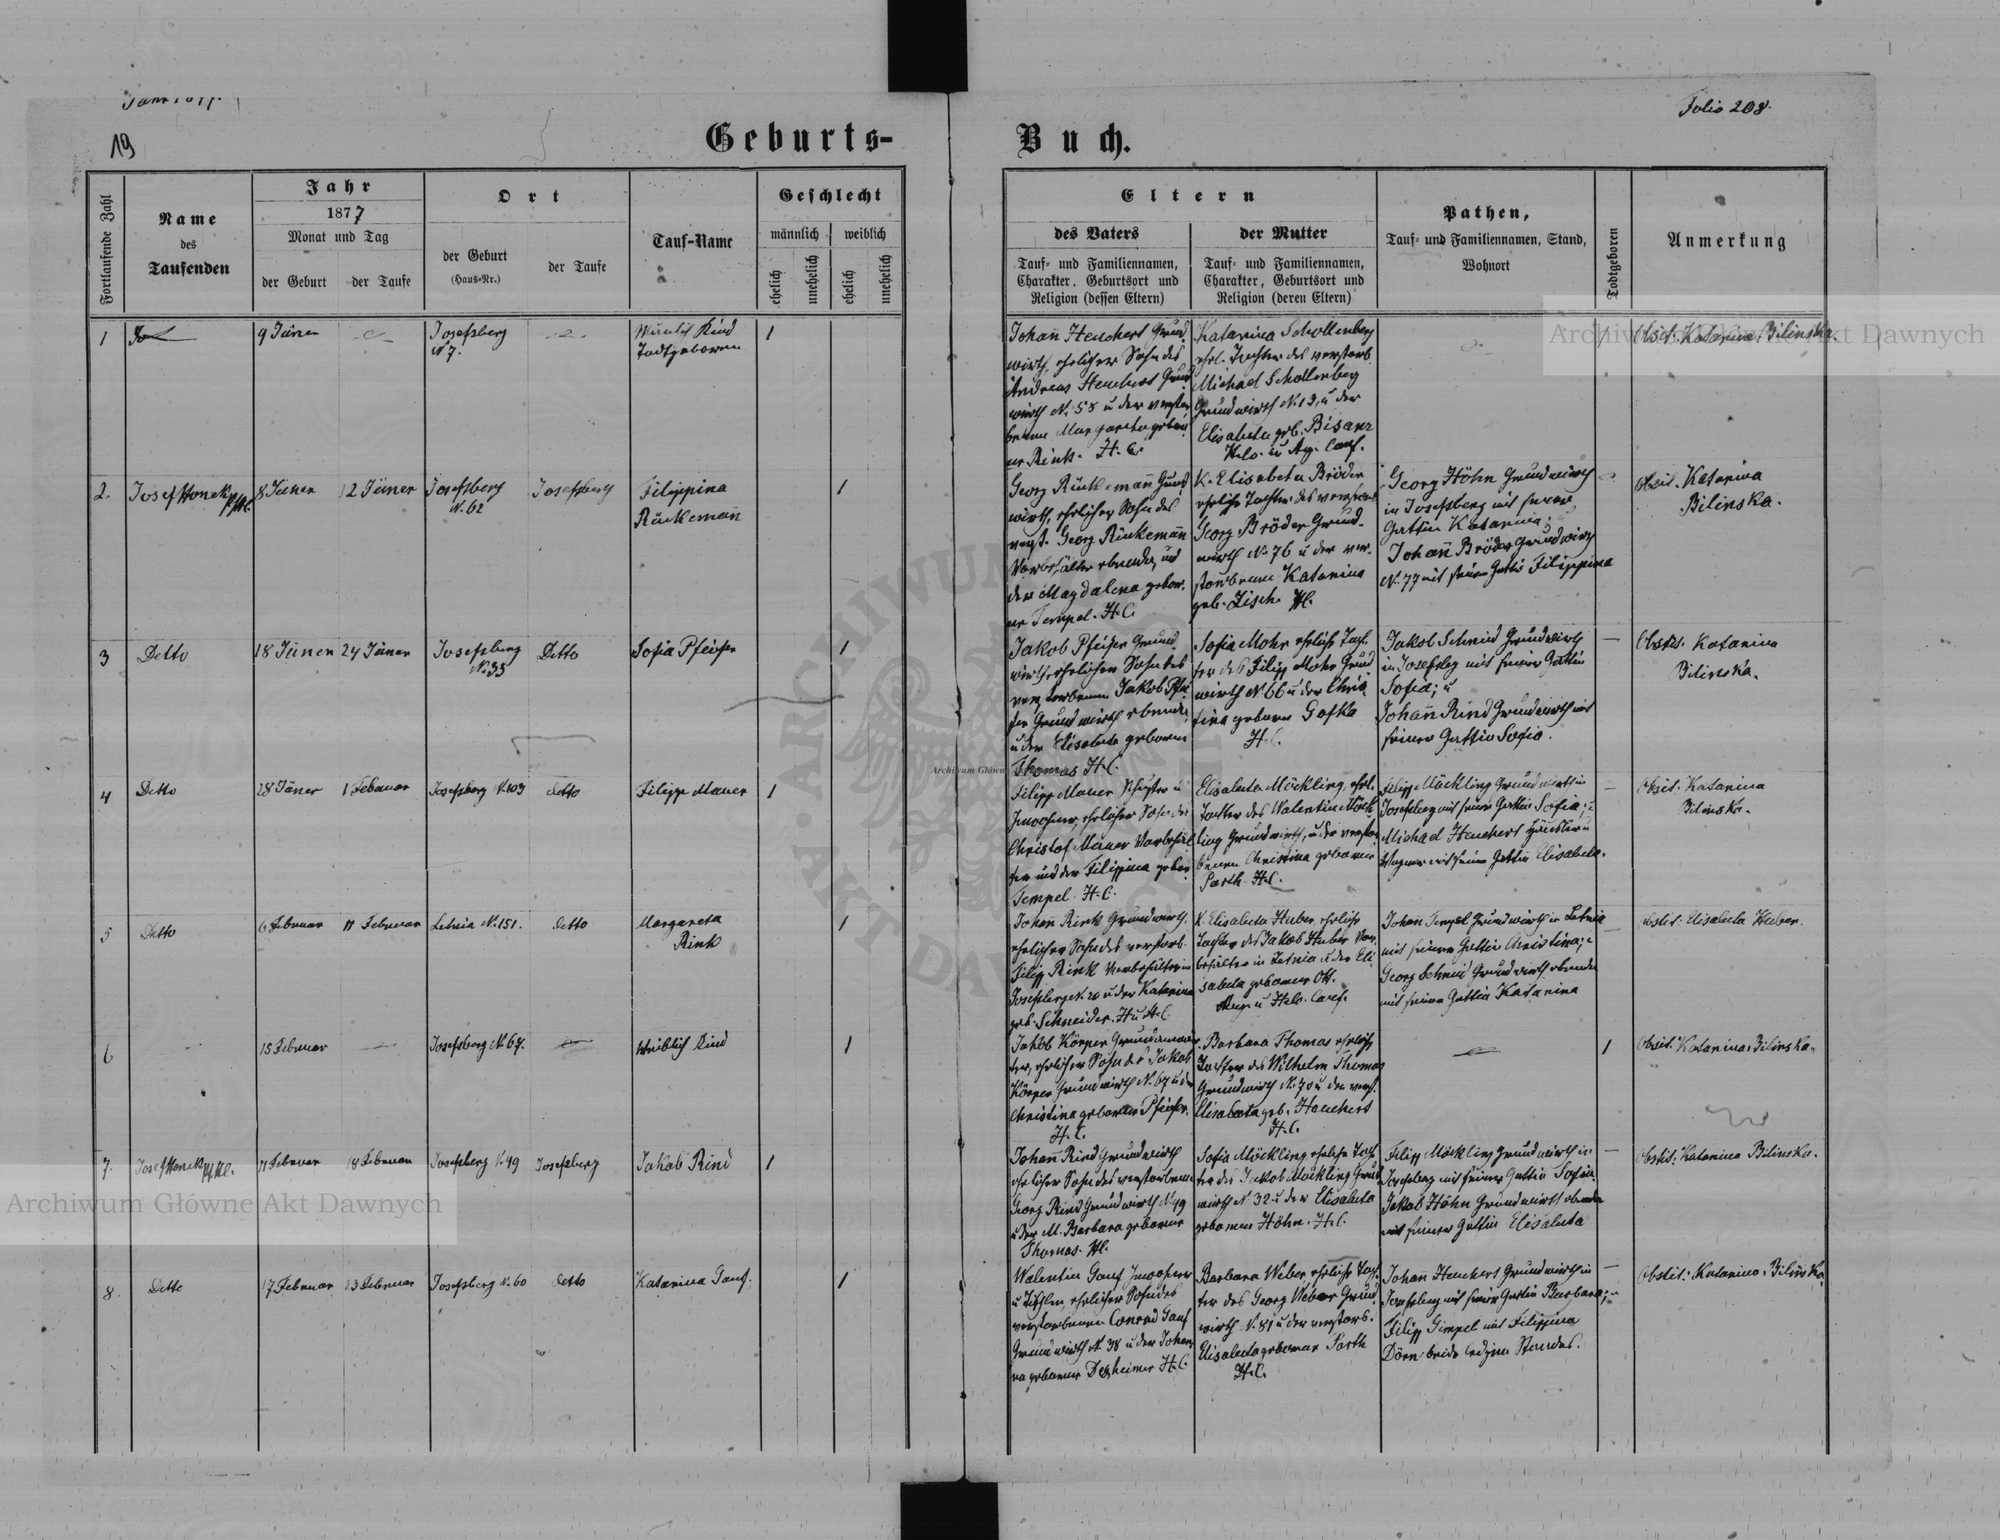 Folio 208.
19
Geburts-
Buch.
Fortlaufende Zahl
Name
des
Taufenden
Jahr
1877
Monat und Tag
der Geburt
der Taufe
Ort
der Geburt
(Haus-Nr.)
der Taufe
Tauf-Name
Geschlecht
männlich
weiblich
ehelich
unehelich
ehelich
unehelich
Eltern
des Vaters
Tauf- und Familiennamen,
Charakter, Geburtsort und
Religion (dessen Eltern)
der Mutter
Tauf- und Familiennamen,
Charakter, Geburtsort und
Religion (deren Eltern)
Pathen,
Tauf- und Familiennamen, Stand,
Wohnort
Todtgeboren
Anmerkung
1
9 Jäner
Josefsberg
N 7.
Kind
Todtgeboren
1
Johann Heuchert Grund
wirth, ehelicher Sohn des
Andreas Heuchert Grund
wirth N. 58 u der verstor
benen Margareta gebor
ner Rink. H. C.
Katarina Schollenberg
ehel. Tochter des verstorb
Michael Schollenberg
Grundwirth N. 13, u der
Elisabeta geb. Bisanz
Helv. u Aug. Conf.
1
Obstet. Katarina Bilinska.
2.
Josef Honek
8 Jäner
12 Jäner
Josefsberg
N. 62
Josefsberg
Filippina
Rinkemann
1
Georg Rinkemann Grund
wirth, ehelicher Sohn des
verst. Georg Rinkemann
Vorbehälter ebenda, und
der Magdalena gebor.
ner Tempel. H. C.
K. Elisabeta Bröder
eheliche Tochter des verstorb
Georg Bröder Grund-
wirth N. 76 u der ver-
storbenen Katarina
geb. Zisch. H.
Georg Höhn Grundwirth
in Josefsberg mit seiner
Gattin Katarina;
Johann Bröder Grundwirth
N. 77 mit seiner Gattin Filippina
Obstet. Katarina
Bilinska.
3
Detto
18 Jäner
24 Jäner
Josefsberg
N. 35
Detto
Sofia Pfeifer
1
Jakob Pfeifer Grund
wirth ehelicher Sohn des
verstorbenen Jakob Pfei
fer Grundwirth ebenda,
u der Elisabeta geboren
Thomas H. C.
Sofia Mohr eheliche Toch
ter des Filipp Mohr Grund
wirth N 66 u der Chris
tina geboren Gofka
H. C.
Jakob Schmid Grundwirth
in Josefsberg mit seiner Gattin
Sofia; u
Johann Rind Grundwirth mit
seiner Gattin Sofia.
Obstet. Katarina
Bilinska.
4
Detto
28 Jäner
1 Februar
Josefsberg N. 103
detto
Filipp Mauer
1
Filipp Mauer Schuster u
Inwohner, ehelicher Sohn des
Christof Mauer Vorbehäl
ter und der Filippina gebor
Tempel. H. C.
Elisabeta Möckling, ehel.
Tochter des Walentin Möck
ling Grundwirth, u der verstor
benen Christina geboren
Parth. H. C.
Filipp Möckling Grundwirth in
Josefsberg mit seiner Gattin Sofia;
Michael Heuchert Häusler u
Wagner mit seiner Gattin Elisabeta.
Obstet. Katarina
Bilinska.
5
Detto
6 Februar
11 Februar
Letnia N. 151.
detto
Margareta
Rink
1
Johann Rink Grundwirth,
ehelicher Sohn des verstorb.
Filipp Rink Vorbehälter in
Josefsberg N. 20 u der Katarina
geb. Schneider. H u A. C.
K Elisabeta Huber, eheliche
Tochter des Jakob Huber Vor
behälter in Letnia u der Eli
sabeta geborner Ott.
Aug. u Helv. Conf.
Johann Tempel Grundwirth in Letnia
mit seiner Gattin Christina;
Georg Schmid Grundwirth ebenda
mit seiner Gattin Katarina
Obstet. Elisabeta Huber.
6
15 Februar
Josefsberg N. 67.
Weiblich Kind
1
Jakob Körper
ehelicher Sohn des Jakob
Körper Grundwirth N. 67 u der
Christina geborner Pfeifer.
H. C.
Barbara Thomas eheliche
Tochter des Wilhelm Thomas
Grundwirth N. 70 u der verst.
Elisabeta geb. Heuchert
H. C.
1
Obstet. Katarina Bilinska.
7.
Josef Honek
11 Februar
18 Februar
Josefsberg N. 49
Josefsberg
Jakob Rind
1
Johann Rind Grundwirth
ehelicher Sohn des verstorbenen
Georg Rind Grundwirth N. 49
u der M. Barbara geborner
Thomas. H.
Sofia Möckling eheliche Toch
ter des Jakob Möckling Grund
wirth N 32 u der Elisabeta
geborner Höhn. H. C.
Filipp Möckling Grundwirth in
Josefsberg mit seiner Gattin Sofia.
Jakob Höhn Grundwirth ebenda
mit seiner Gattin Elisabeta
Obstet: Katarina Bilinska.
8.
Detto
17 Februar
23 Februar
Josefsberg N. 60
detto
Katarina Gauf.
1
Walentin Gauf Inwohner
u Tischler, ehelicher Sohn des
verstorbenen Conrad Gauf
Grundwirth N 38 u der Johan
na geborner Dexheimer H. C.
Barbara Weber eheliche Toch
ter des Georg Weber Grund
wirth N. 81 u der verstorb.
Elisabeta geborner Parth
H. C.
Johan Heuchert Grundwirth in
Josefsberg mit seiner Gattin Barbara;
Filipp Gimpel mit Filippina
Dörn beide ledigen Standes.
Obstet: Katarina Bilinska
Archiwum Główne Akt Dawnych
Archiwum Główne Akt Dawnych